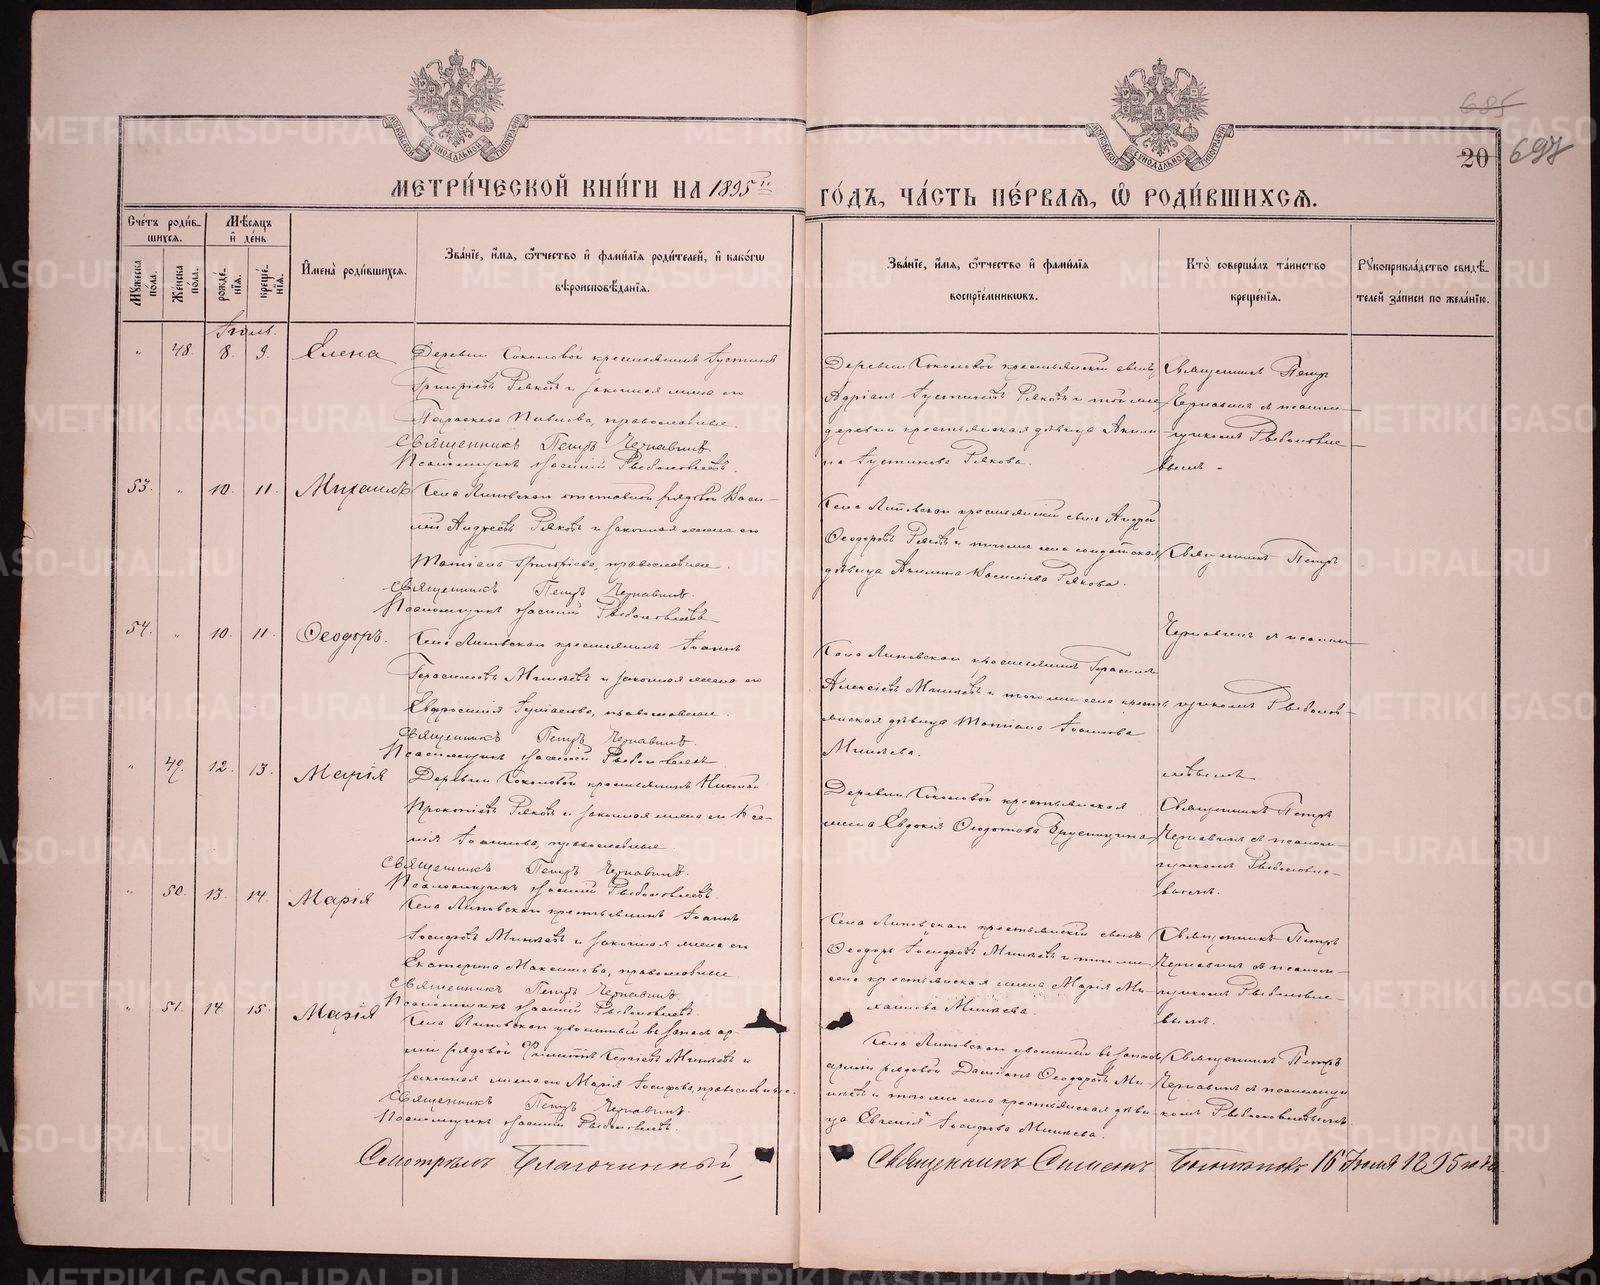 685
20 697
МЕТРИ́ЧЕСКОЙ КНИ́ГИ НА 1895й
ГО́ДЪ, ЧА́СТЬ ПЕ́РВАѦ, Ѿ РОДИ́ВШИХСѦ.
Сче́тъ роди́в-
шихся.
Мꙋ́жеска по́ла.
Же́нска по́ла.
Мѣ́сяцъ и де́нь
рожде́нія.
креще́нія.
Имена̀ роди́вшихся.
Зва́ніе, и́мя, ѻ҆́тчество и фами́лія роди́телей, и како́гѡ
вѣроисповѣ́данія.
Зва́ніе, и́мя, ѻ҆́тчество и фами́лія
воспріе́мникѡвъ.
Кто̀ соверша́лъ та́инство
креще́нія.
Рꙋкоприкла́дство свидѣ́-
телей за́писи по жела́нію.
Іюль.
" 48. 8. 9. Елена
Деревни Соколовой крестьянинъ Іустинъ
Григоріевъ Ряковъ и законная жена его
Параскева Павлова, православные.
Священникъ Петръ Чернавинъ.
Псаломщикъ Василій Рыболовлевъ.
Деревни Соколовой крестьянскій сынъ
Адріанъ Іустиновъ Ряковъ и той же
деревни крестьянская дѣвица Акили-
на Іустинова Рякова.
Священникъ Петръ
Чернавинъ съ псалом-
щикомъ Рыболовле-
вымъ.
53. " 10. 11. Михаилъ
Села Липовскаго отставной рядовой Васи-
лій Андреевъ Ряковъ и законная жена его
Татіана Григоріева, православные.
Священникъ Петръ Чернавинъ.
Псаломщикъ Василій Рыболовлевъ
Села Липовскаго крестьянскій сынъ Андрей
Ѳеодоровъ Ряковъ и того же села солдатская
дѣвица Акилина Васильева Рякова.
Священникъ Петръ
54. " 10. 11. Ѳеодоръ.
Села Липовскаго крестьянинъ Іоаннъ
Герасимовъ Минѣевъ и законная жена его
Евфросинія, православные.
Священникъ Петръ Чернавинъ.
Псаломщикъ Василій Рыболовлевъ
Села Липовскаго крестьянинъ Герасимъ
Алексіевъ Минѣевъ и того же села кресть-
янская дѣвица Татіана Іоаннова
Минѣева.
Чернавинъ съ псалом-
щикомъ Рыболов-
левымъ
" 49. 12. 13. Марія
Деревни Соколовой крестьянинъ Николай
Прокопіевъ Ряковъ и законная жена его Ксе-
нія Іоаннова, православные.
Священникъ Петръ Чернавинъ.
Псаломщикъ Василій Рыболовлевъ.
Деревни Соколовой крестьянская
жена Евдокія Ѳеодотова Брусницина
Священникъ Петръ
Чернавинъ съ псалом-
щикомъ Рыболовле-
вымъ.
" 50. 13. 14. Марія
Села Липовскаго крестьянинъ Іоаннъ
Іосифовъ Минѣевъ и законная жена его
Екатерина Максимова, православные
Священникъ Петръ Чернавинъ
Псаломщикъ Василій Рыболовлевъ.
Села Липовскаго крестьянскій сынъ
Ѳеодоръ Іосифовъ Минѣевъ и того же
села крестьянская жена Марія Ми-
хаилова Минѣева.
Священникъ Петръ
Чернавинъ съ псалом-
щикомъ Рыболовле-
вымъ.
" 51. 14. 15. Марія
Села Липовскаго уволенный въ запасъ ар-
міи рядовой Филиппъ Сергіевъ Минѣевъ и
законная жена его Марія Іосифова, православные.
Священникъ Петръ Чернавинъ.
Псаломщикъ Василій Рыболовлевъ.
Села Липовскаго уволенный въ запасъ
арміи рядовой Даміанъ Ѳеодоровъ Ми-
нѣевъ и того же села крестьянская дѣви-
ца Евгенія Іосифова Минѣева.
Священникъ Петръ
Чернавинъ съ псаломщи-
комъ Рыболовлевымъ.
Смотрѣлъ Благочинный
Священникъ Симеонъ 16 Іюля 1895 года.
METRIKI.GASO-URAL.RU